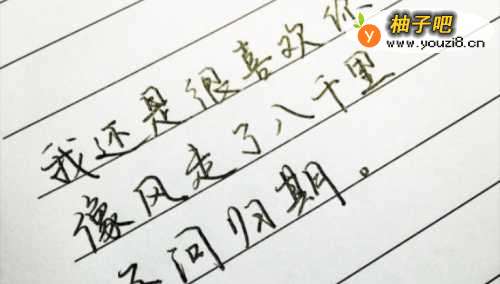 柚子吧
www.youzi8.cn
我还是很喜欢你
像风走了八千里
不问归期。